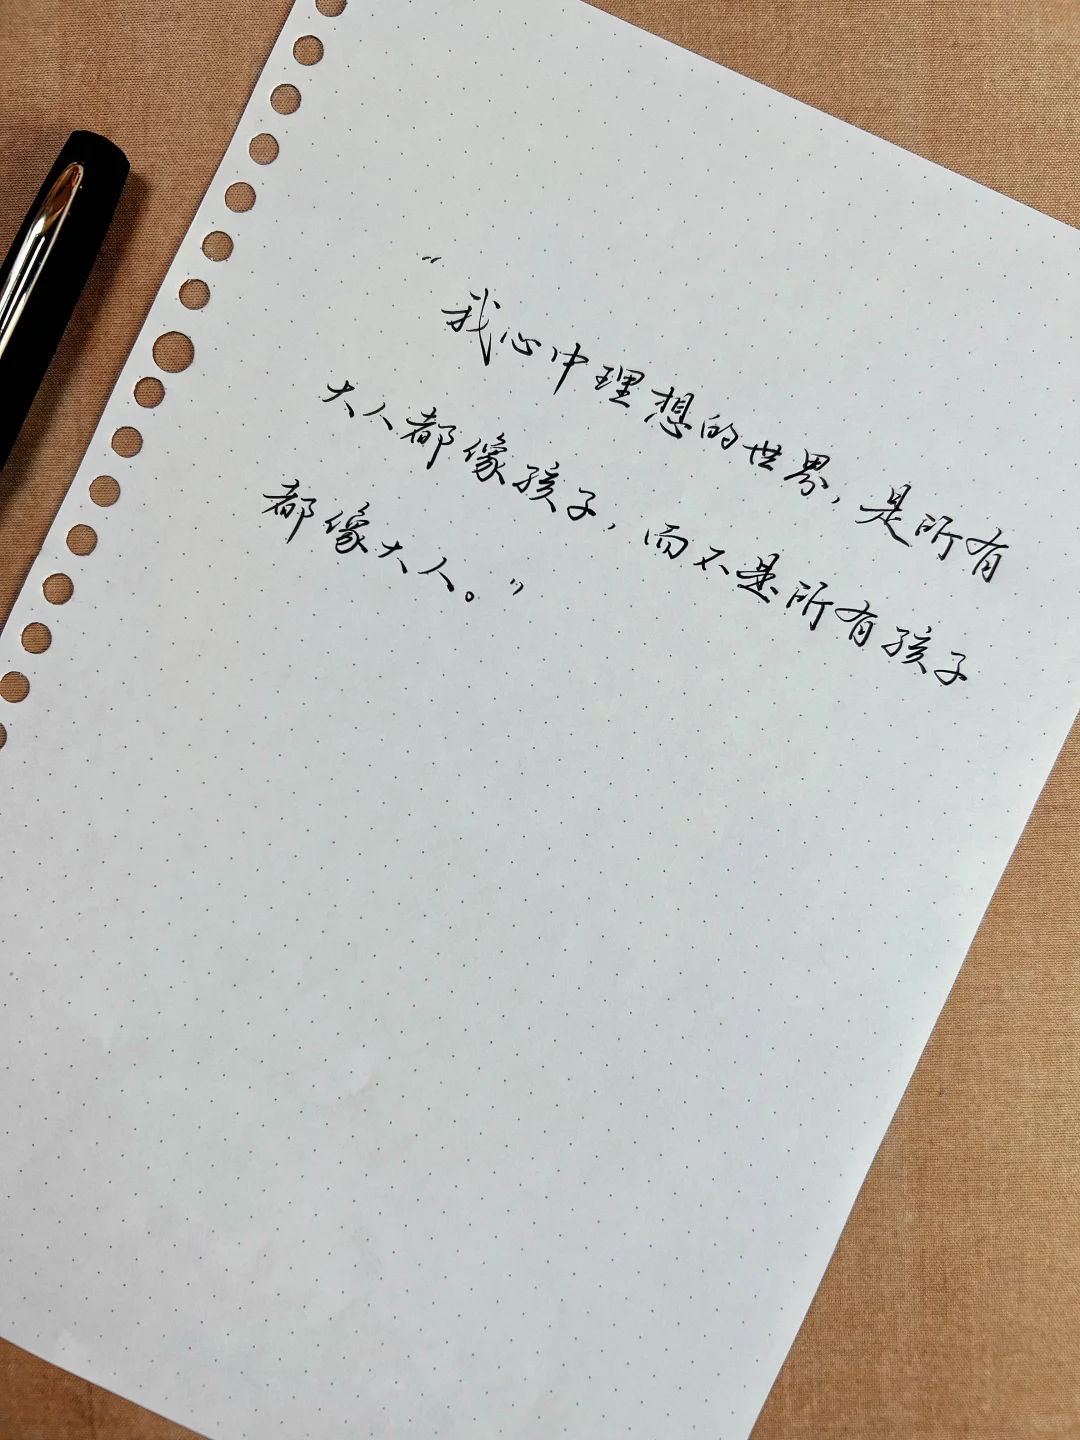 “我心中理想的世界，是所有
大人都像孩子，而不是所有孩子
都像大人。”